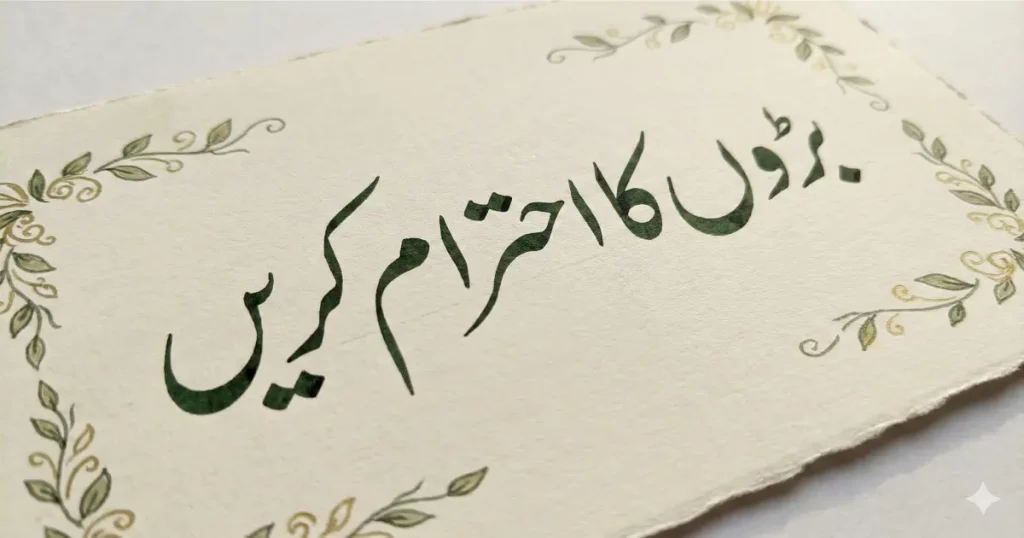 بڑوں کا احترام کریں